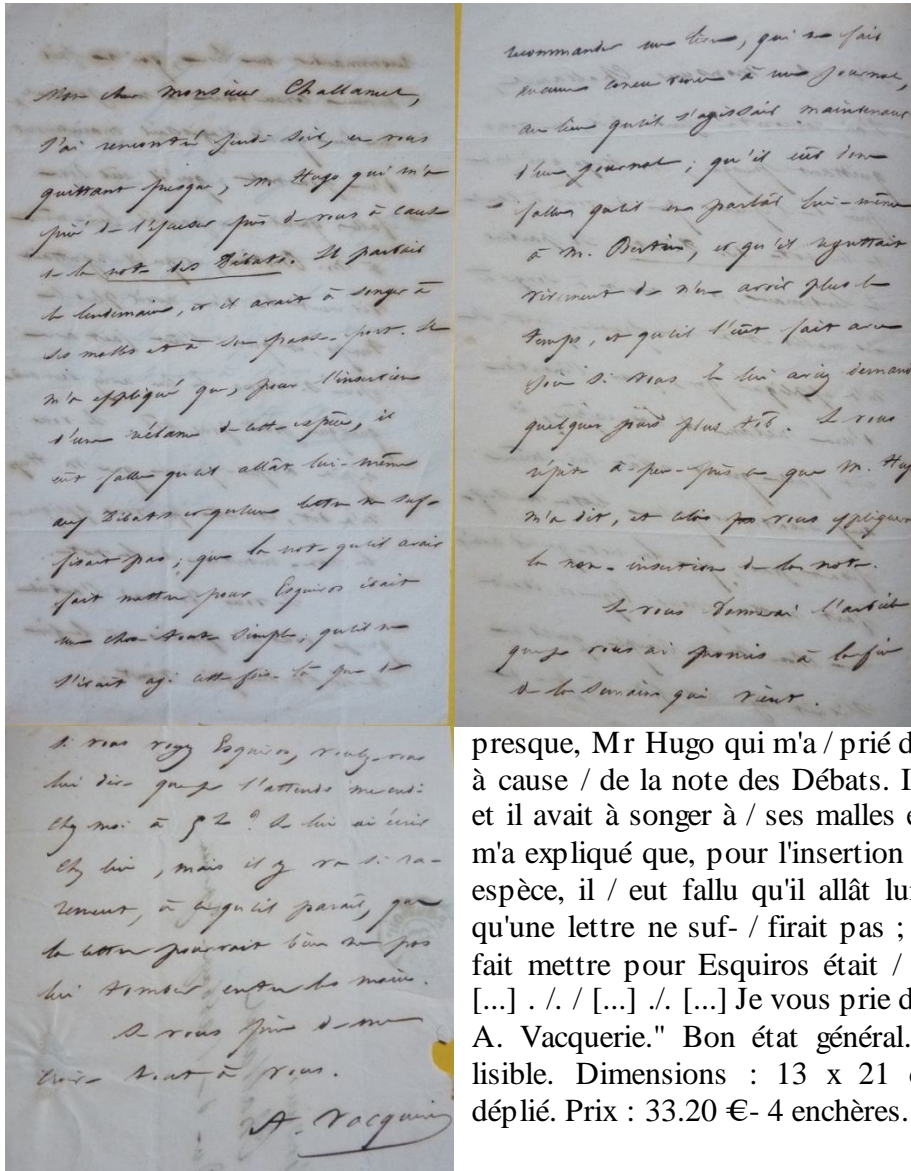 Mon cher Monsieur Challamel,
J'ai rencontré jeudi soir, en vous
quittant presque, Mr Hugo qui m'a
prié de l'excuser près de vous à cause
de la note des Débats. Il partait
le lendemain, et il avait à songer à
ses malles et à son passe-port. Il
m'a expliqué que, pour l'insertion
d'une réclame de cette espèce, il
eût fallu qu'il allât lui-même
aux Débats et qu'une lettre ne suf-
firait pas ; que la note qu'il avait
fait mettre pour Esquiros était
une chose toute simple, qu'il ne
s'était agi cette fois-là que de
recommander un livre, qui ne fait
aucune concurrence à un journal,
au lieu qu'il s'agissait maintenant
d'un journal ; qu'il eût donc
fallu qu'il en parlât lui-même
à M. Bertin, et qu'il regrettait
vivement de n'en avoir plus le
temps, et qu'il l'eût fait avec
joie si vous le lui aviez demandé
quelques jours plus tôt. Je vous
répète à peu-près ce que M. Hugo
m'a dit, et cela vous expliquera
la non-insertion de la note.
Je vous donnerai l'article
que je vous ai promis à la fin
de la semaine qui vient.
Si vous voyez Esquiros, voulez-vous
lui dire que je l'attends mercredi
chez moi à ? Je lui ai écrit
chez lui, mais il y va si ra-
rement, à ce qu'il paraît, que
la lettre pourrait bien ne pas
lui tomber entre les mains.
Je vous prie de me
croire tout à vous.
A. Vacquerie
presque, Mr Hugo qui m'a / prié d
à cause / de la note des Débats. I
et il avait à songer à / ses malles e
m'a expliqué que, pour l'insertion
espèce, il / eut fallu qu'il allât lu
qu'une lettre ne suf- / firait pas ;
fait mettre pour Esquiros était /
[...] . /. / [...] ./. [...] Je vous prie d
A. Vacquerie." Bon état général.
lisible. Dimensions : 13 x 21
déplié. Prix : 33.20 €- 4 enchères.